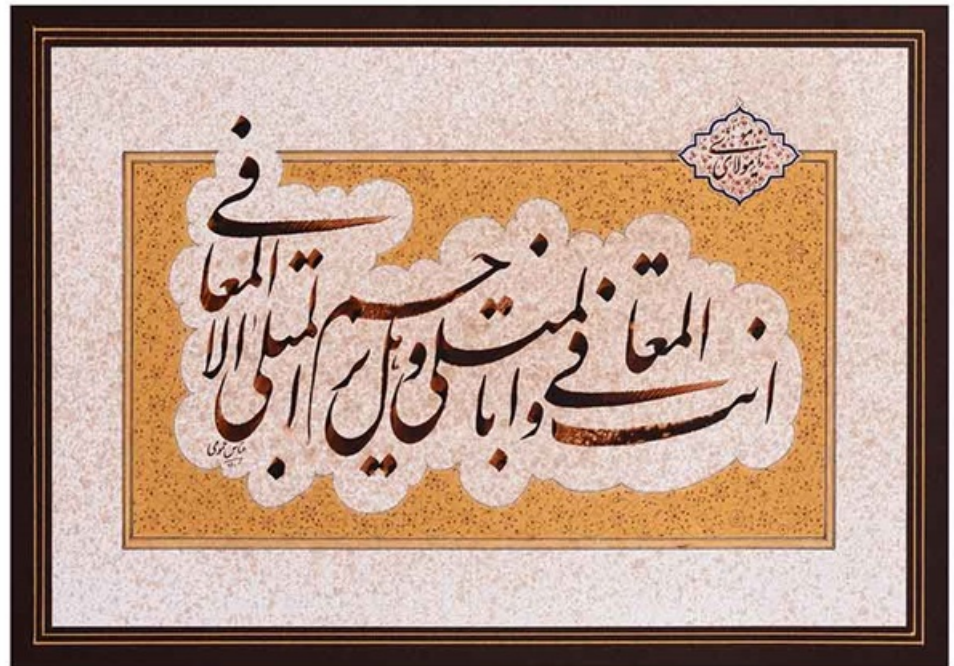 مولای یا مولای
انت المعافی و انا المبتلی و هل یرحم المبتلی الا المعافی